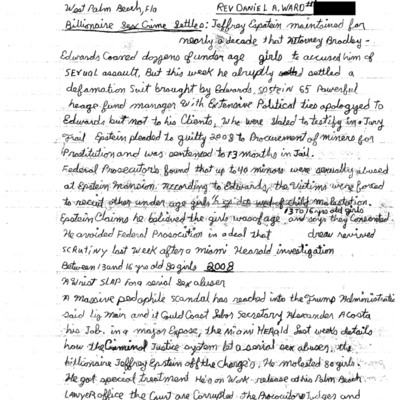 West Palm Beach, Fla REV DANIEL A. WARD #
Billionaire Sex Crime Settled: Jeffrey Epstein maintained for
nearly a decade that Attorney Bradley-
Edwards Coaxed dozens of under age girls to accused him of
sexual assault. But this week he abruptly settled a
defamation Suit brought by Edwards. 65 Powerful
heage fund manager with Extensive Political ties apologyed to
Edwards but not to his Clients, Who were slated to testify in a Jury
Trail Epstein pleaded to guilty 2008 to Procurement of miners for
Prostitution and was sentenced to 13 months in Jail.
Federal Prosecutors found that up to 40 minors were sexually abused
at Epstein Mansion. According to Edwards, the Victims were forced
to recuit other under age girls molestation.
13 to 16 year old girls
Epstein Claims he belived the girl was of age and says they Consented
He avoided Federal Prosecution in a deal that drew revived
scrutiny last week after a miami Hearald investigation
Between 13 and 16 yrs old 80 girls 2008
A Wrist SLAP for a serial Sex abuser
A massive pedophile scandal has reached into the Trump Administratio
said Liz Main and it Could Cost Labor Secretary Alexander Acosta
his Job. in a major Expose, the Miami Herald last weeks details
how the Criminal Justice system let a serial sex abuser, the
billionaire Jeffrey Epstein off the Charge's, He molested 80 girls.
He got special treatment He's on Work-release at his Palm Beach
Lawyer office the Court are Corrupted. The Procecutors Judges and